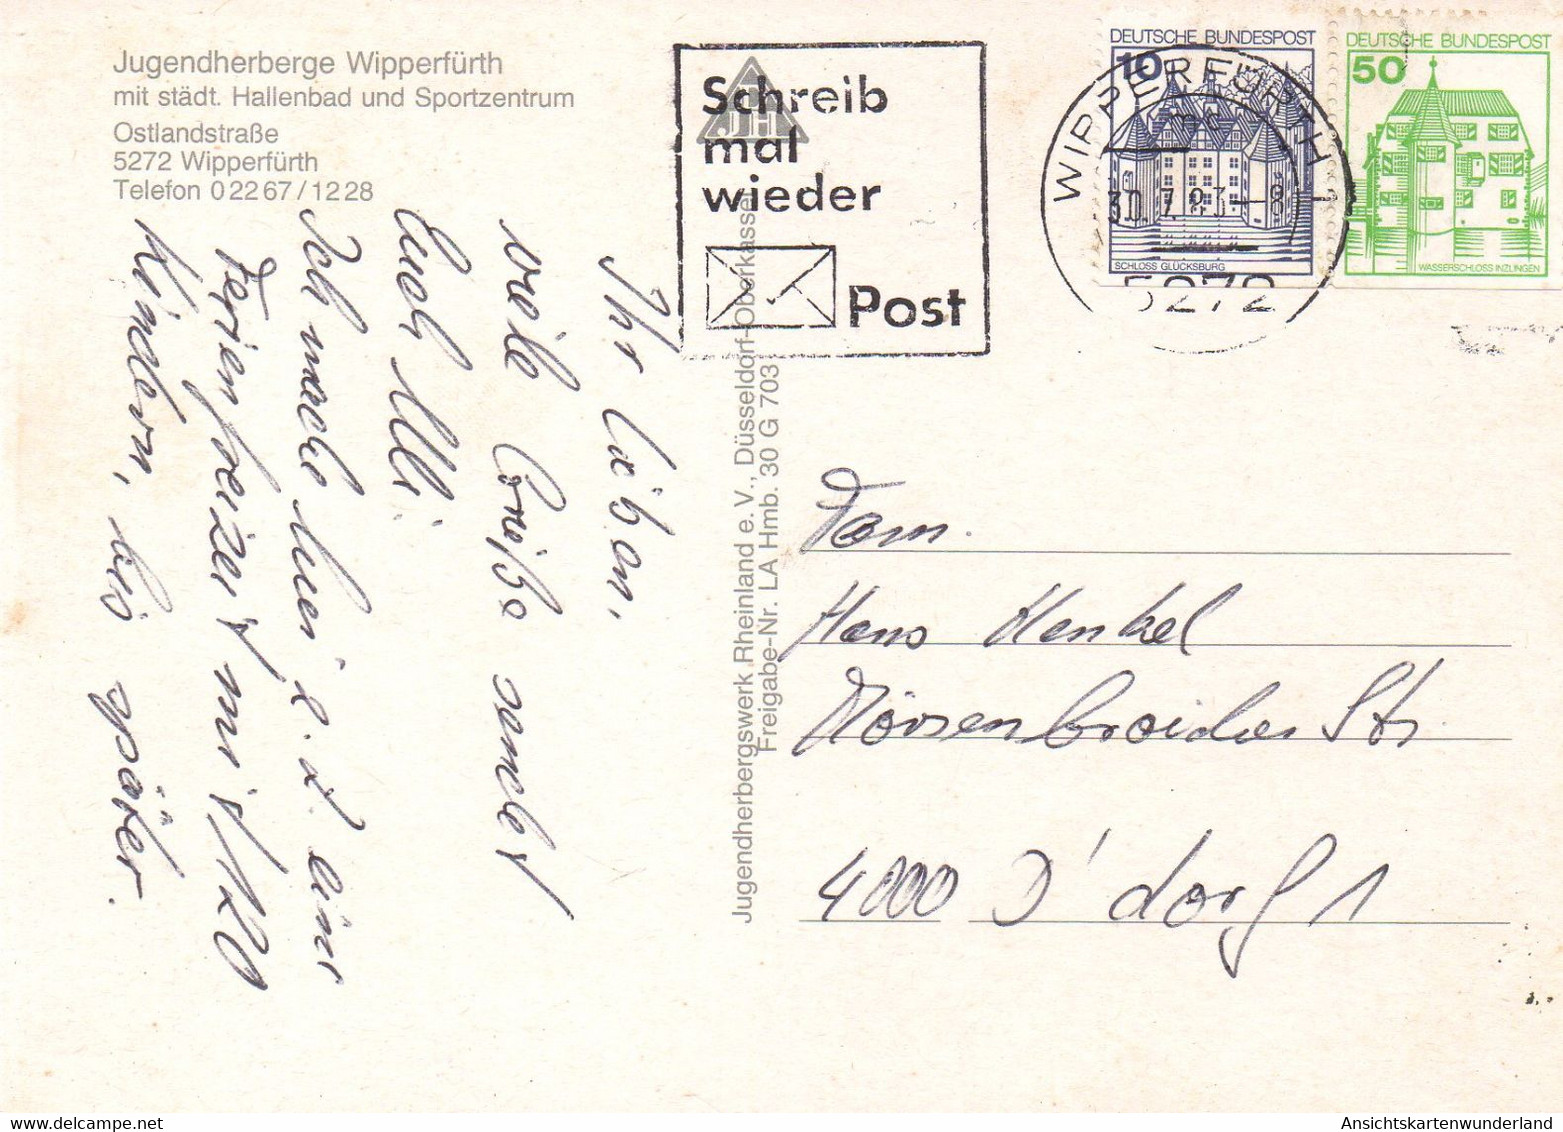 Jugendherberge Wipperfürth
mit städt. Hallenbad und Sportzentrum
Ostlandstraße
5272 Wipperfürth
Telefon 0 22 67 / 12 28
JH
Schreib
mal
wieder
Post
DEUTSCHE BUNDESPOST
10
SCHLOSS GLÜCKSBURG
DEUTSCHE BUNDESPOST
50
WASSERSCHLOSS INZLINGEN
WIPPERFÜRTH 1
30.7.83-8
5272
Ihr Lieben,
viele Grüße sendet
Euch Ulli.
Ich mache hier z. Z. eine
Ferienfreizeit mit 120
Kindern, bis später.
Jugendherbergswerk Rheinland e. V., Düsseldorf-Oberkassel
Freigabe-Nr. LA Hmb. 30 G 703
Fam.
Hans Henkel
Mörsenbroicher Str.
4000 D'dorf 1
AnsichtskartenWunderland